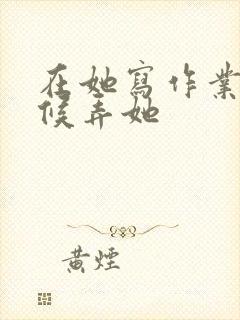 在她寫作業
候弄她
黃煙